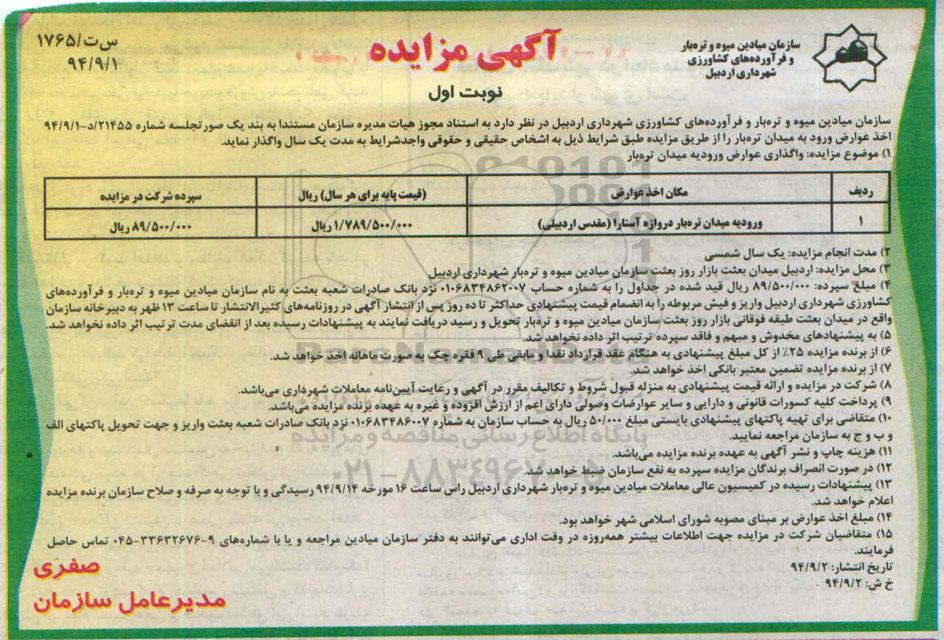 سازمان میادین میوه و تره‌بار
و فرآورده‌های کشاورزی
شهرداری اردبیل
آگهی مزایده
نوبت اول
س‌ت/۱۷۶۵
۹۴/۹/۱
سازمان میادین میوه و تره‌بار و فرآورده‌های کشاورزی شهرداری اردبیل در نظر دارد به استناد مجوز هیات مدیره سازمان مستندا به بند یک صورتجلسه شماره ۲۱۴۵۵/د-۹۴/۹/۱
اخذ عوارض ورود به میدان تره‌بار را از طریق مزایده طبق شرایط ذیل به اشخاص حقیقی و حقوقی واجدشرایط به مدت یک سال واگذار نماید.
۱) موضوع مزایده: واگذاری عوارض ورودیه میدان تره‌بار
ردیف مکان اخذ عوارض (قیمت پایه برای هر سال) ریال سپرده شرکت در مزایده
۱ ورودیه میدان تره‌بار دروازه آستارا (مقدس اردبیلی) ۱/۷۸۹/۵۰۰/۰۰۰ ریال ۸۹/۵۰۰/۰۰۰ ریال
۲) مدت انجام مزایده: یک سال شمسی
۳) محل مزایده: اردبیل میدان بعثت بازار روز بعثت سازمان میادین میوه و تره‌بار شهرداری اردبیل
۴) مبلغ سپرده: ۸۹/۵۰۰/۰۰۰ ریال قید شده در جداول را به شماره حساب ۰۱۰۶۸۳۴۸۶۲۰۰۷ نزد بانک صادرات شعبه بعثت به نام سازمان میادین میوه و تره‌بار و فرآورده‌های
کشاورزی شهرداری اردبیل واریز و فیش مربوطه را به انضمام قیمت پیشنهادی حداکثر تا ده روز پس از انتشار آگهی در روزنامه‌های کثیرالانتشار تا ساعت ۱۳ ظهر به دبیرخانه سازمان
واقع در میدان بعثت طبقه فوقانی بازار روز بعثت سازمان میادین میوه و تره‌بار تحویل و رسید دریافت نمایند به پیشنهادات رسیده بعد از انقضای مدت ترتیب اثر داده نخواهد شد.
۵) به پیشنهادهای مخدوش و مبهم و فاقد سپرده ترتیب اثر داده نخواهد شد.
۶) از برنده مزایده ۲۵٪ از کل مبلغ پیشنهادی به هنگام عقد قرارداد نقدا و مابقی طی ۹ فقره چک به صورت ماهانه اخذ خواهد شد.
۷) از برنده مزایده تضمین معتبر بانکی اخذ خواهد شد.
۸) شرکت در مزایده و ارائه قیمت پیشنهادی به منزله قبول شروط و تکالیف مقرر در آگهی و رعایت آیین‌نامه معاملات شهرداری می‌باشد.
۹) پرداخت کلیه کسورات قانونی و دارایی و سایر عوارضات وصولی دارای اعم از ارزش افزوده و غیره به عهده برنده مزایده می‌باشد.
۱۰) متقاضی برای تهیه پاکتهای پیشنهادی بایستی مبلغ ۵۰/۰۰۰ ریال به حساب سازمان به شماره ۰۱۰۶۸۳۴۸۶۰۰۷ نزد بانک صادرات شعبه بعثت واریز و جهت تحویل پاکتهای الف
و ب و ج به سازمان مراجعه نمایید.
۱۱) هزینه چاپ و نشر آگهی به عهده برنده مزایده می‌باشد.
۱۲) در صورت انصراف برندگان مزایده سپرده به نفع سازمان ضبط خواهد شد.
۱۳) پیشنهادات رسیده در کمیسیون عالی معاملات میادین میوه و تره‌بار شهرداری اردبیل راس ساعت ۱۶ مورخه ۹۴/۹/۱۴ رسیدگی و با توجه به صرفه و صلاح سازمان برنده مزایده
اعلام خواهد شد.
۱۴) مبلغ اخذ عوارض بر مبنای مصوبه شورای اسلامی شهر خواهد بود.
۱۵) متقاضیان شرکت در مزایده جهت اطلاعات بیشتر همه‌روزه در وقت اداری می‌توانند به دفتر سازمان میادین مراجعه و یا با شماره‌های ۹-۳۳۶۳۲۶۷۶-۰۴۵ تماس حاصل
فرمایند.
تاریخ انتشار: ۹۴/۹/۲
خ ش: ۹۴/۹/۲
صفری
مدیرعامل سازمان
پایگاه اطلاع رسانی مناقصه و مزایده